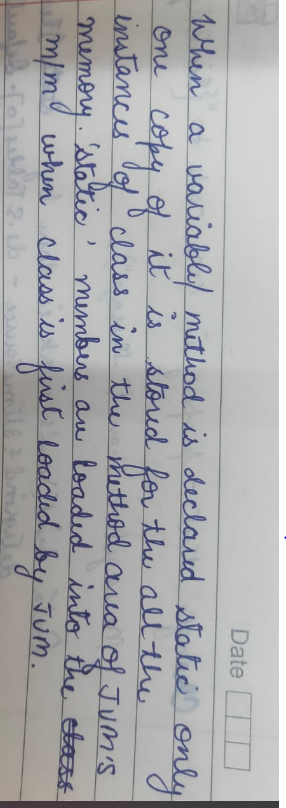 Date
When a variable/method is declared static only
one copy of it is stored for the all the
instances of class in the method area of JVM's
memory. 'static' members are loaded into the class
m/m when class is first loaded by JVM.